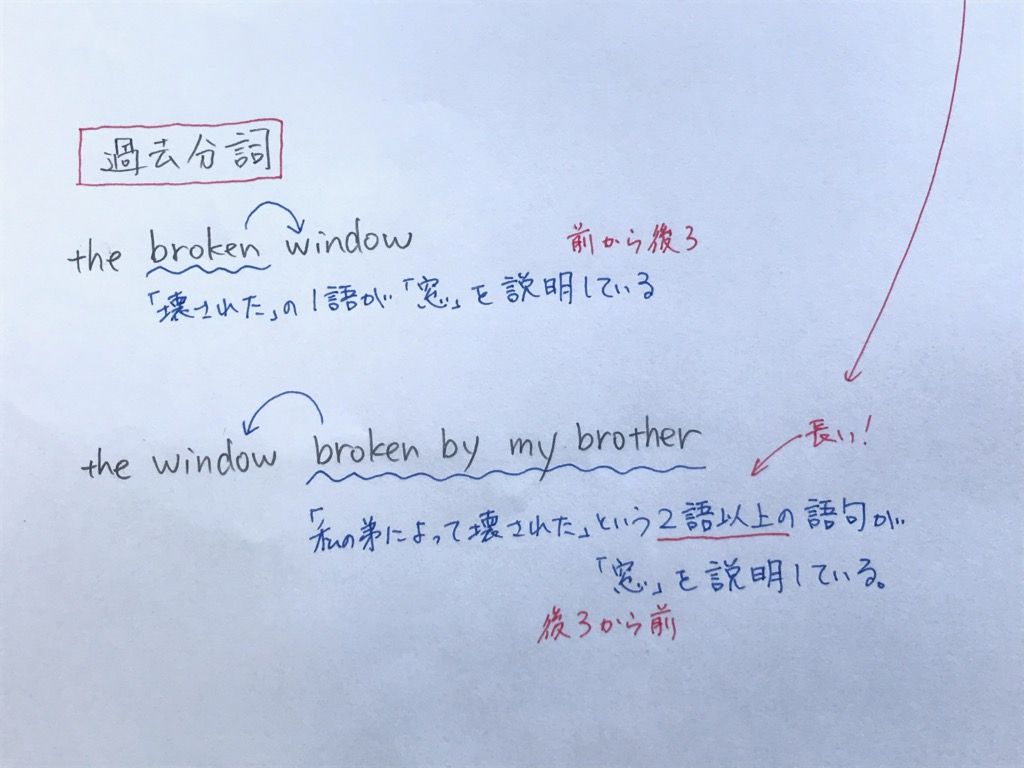 過去分詞
the broken window 前から後ろ
「壊された」の1語が「窓」を説明している
the window broken by my brother 長い!
「私の弟によって壊された」という2語以上の語句が
「窓」を説明している。
後ろから前